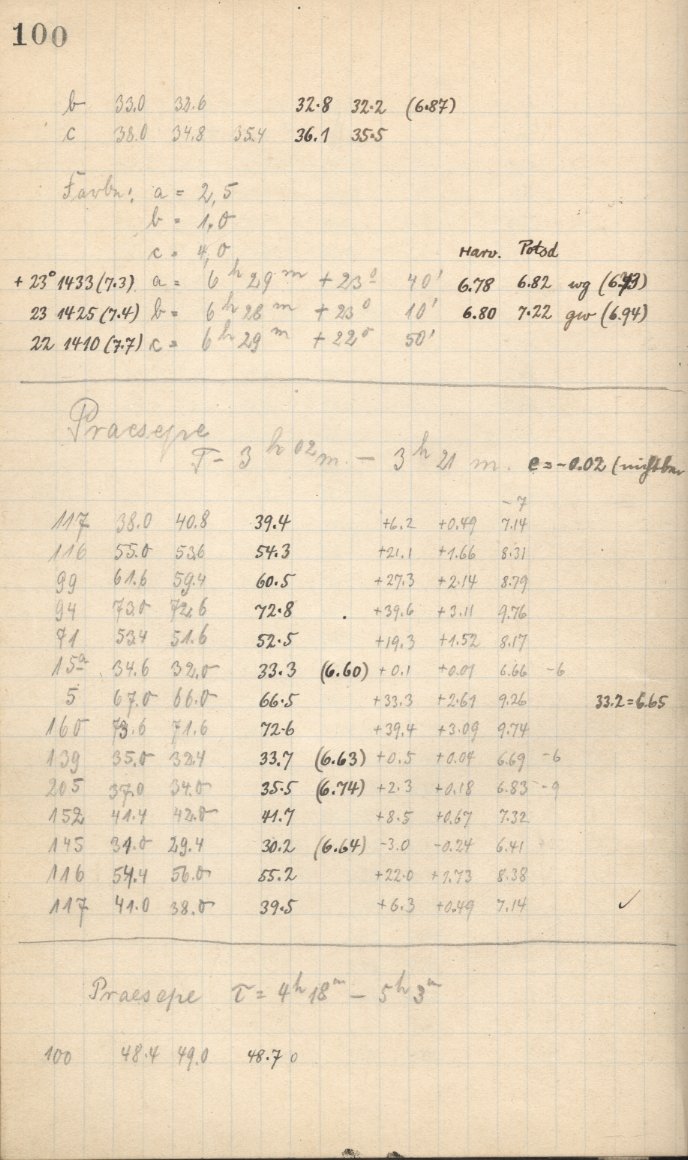 100
b 33.0 32.6 32.8 32.2 (6.87)
c 38.0 34.8 35.4 36.1 35.5
Farbe: a = 2,5
b = 1,0
c = 4,0
Harv. Potsd
+23° 1433 (7.3) a = 6h 29m +23° 40' 6.78 6.82 wg
23 1425 (7.4) b = 6h 28m +23° 10' 6.80 7.22 gw (6.94)
22 1410 (7.7) c = 6h 29m +22° 50'
Praesepe
T = 3h 02m. – 3h 21m. e = -0.02
-7
117 38.0 40.8 39.4 +6.2 +0.49 7.14
116 55.0 53.6 54.3 +21.1 +1.66 8.31
99 61.6 59.4 60.5 +27.3 +2.14 8.79
94 73.0 72.6 72.8 +39.6 +3.11 9.76
71 53.4 51.6 52.5 +19.3 +1.52 8.17
15a 34.6 32.0 33.3 (6.60) +0.1 +0.01 6.66 -6
5 67.0 66.0 66.5 +33.3 +2.61 9.26 33.2=6.65
160 73.6 71.6 72.6 +39.4 +3.09 9.74
139 35.0 32.4 33.7 (6.63) +0.5 +0.04 6.69 -6
205 37.0 34.0 35.5 (6.74) +2.3 +0.18 6.83 -9
152 41.4 42.0 41.7 +8.5 +0.67 7.32
145 31.0 29.4 30.2 (6.64) -3.0 -0.24 6.41
116 54.4 56.0 55.2 +22.0 +1.73 8.38
117 41.0 38.0 39.5 +6.3 +0.49 7.14 ✓
Praesepe T = 4h 18m – 5h 3m
100 48.4 49.0 48.7 0